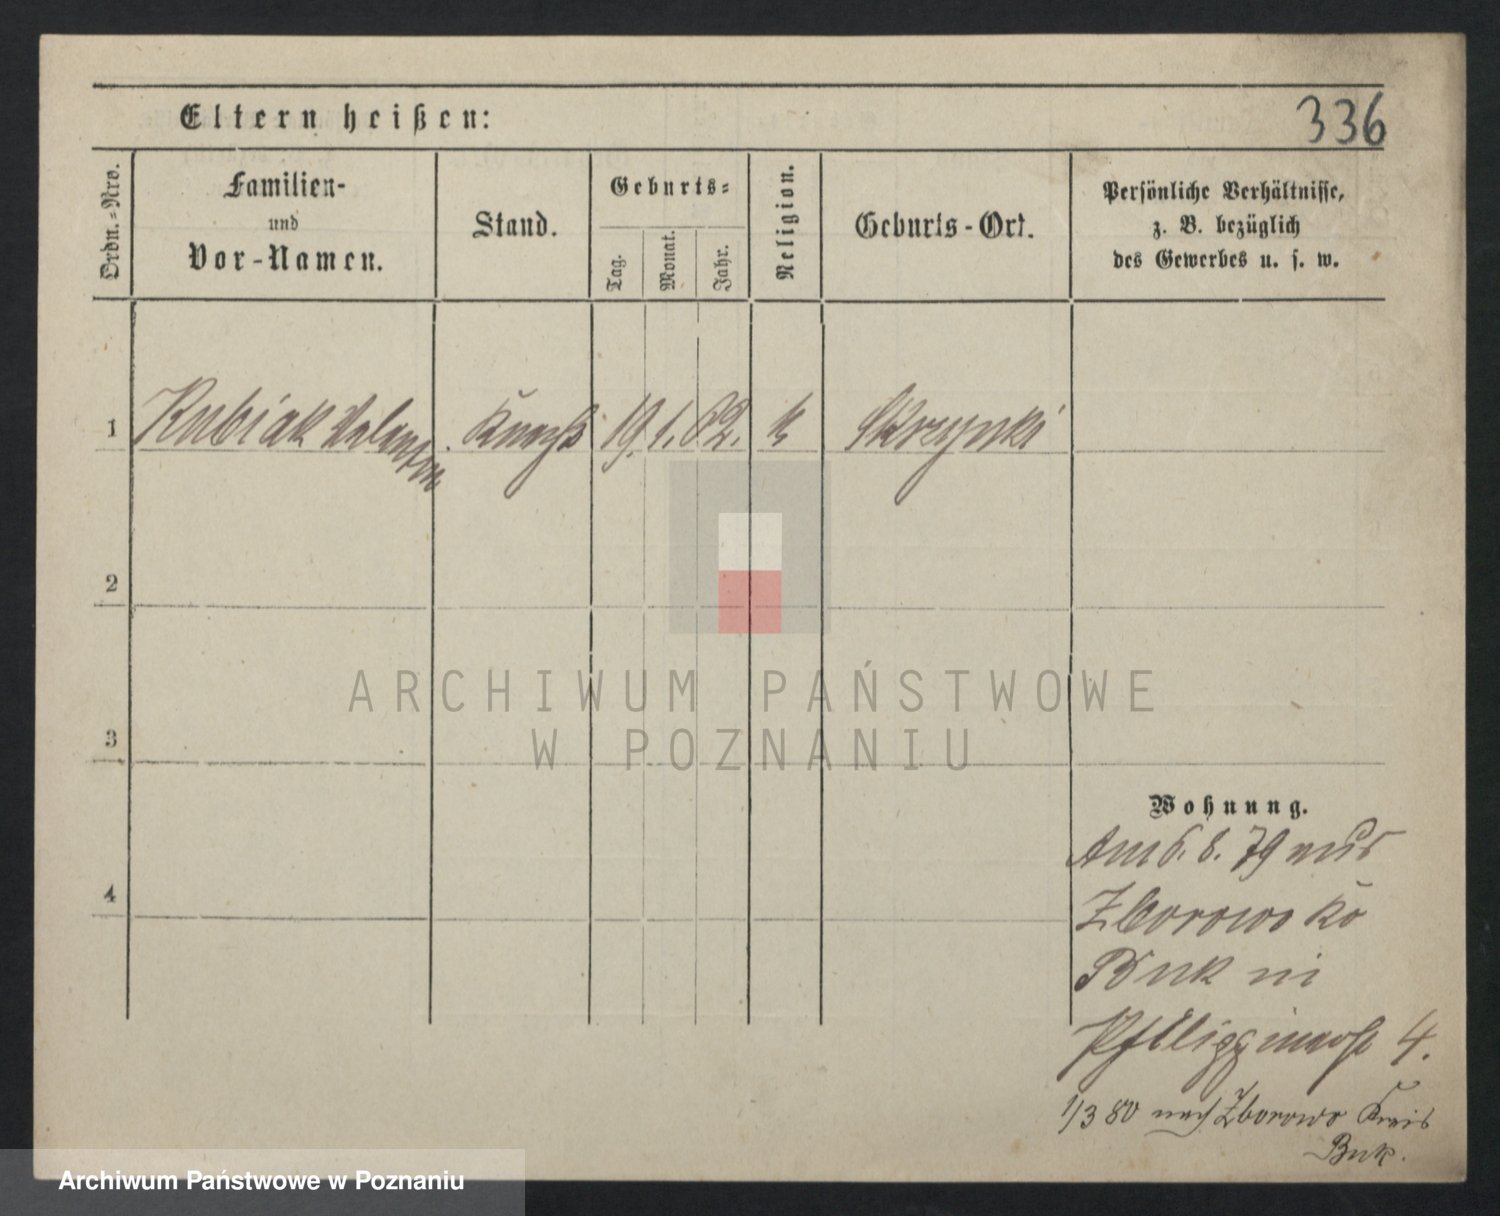 Eltern heißen:
336
Ordn.=Nro.
Familien-
und
Vor-Namen.
Stand.
Geburts=
Tag.
Monat.
Jahr.
Religion.
Geburts-Ort.
Persönliche Verhältnisse,
z. B. bezüglich
des Gewerbes u. s. w.
1 Kubiak Valentin Knecht 19. 1. 62. k Skrzynki
2
ARCHIWUM PAŃSTWOWE
W POZNANIU
3
Wohnung.
4
Am 6. 8. 79 aus
Zborowo Kr
Buk in
4.
1/3 80 nach Zborowo Kreis
Buk.
Archiwum Państwowe w Poznaniu